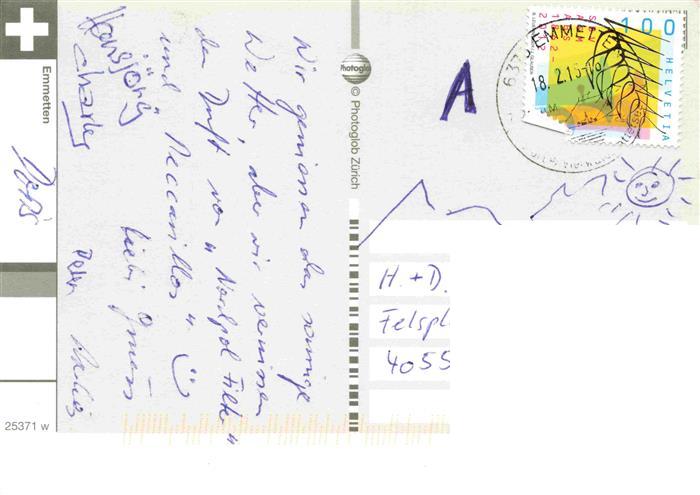 Wir geniessen das sonnige
Wetter, aber wir vermissen
den Duft von "Nordpol Filter"
und Peccarillos" :)
Liebi Grüess
Hansjörg
Charles
Peter
Doris
Emmetten
25371 w
Photoglob
© Photoglob Zürich
A
6376 EMMETTEN
18.2.13-16
100
HELVETIA
H. + D.
Felspl
4055